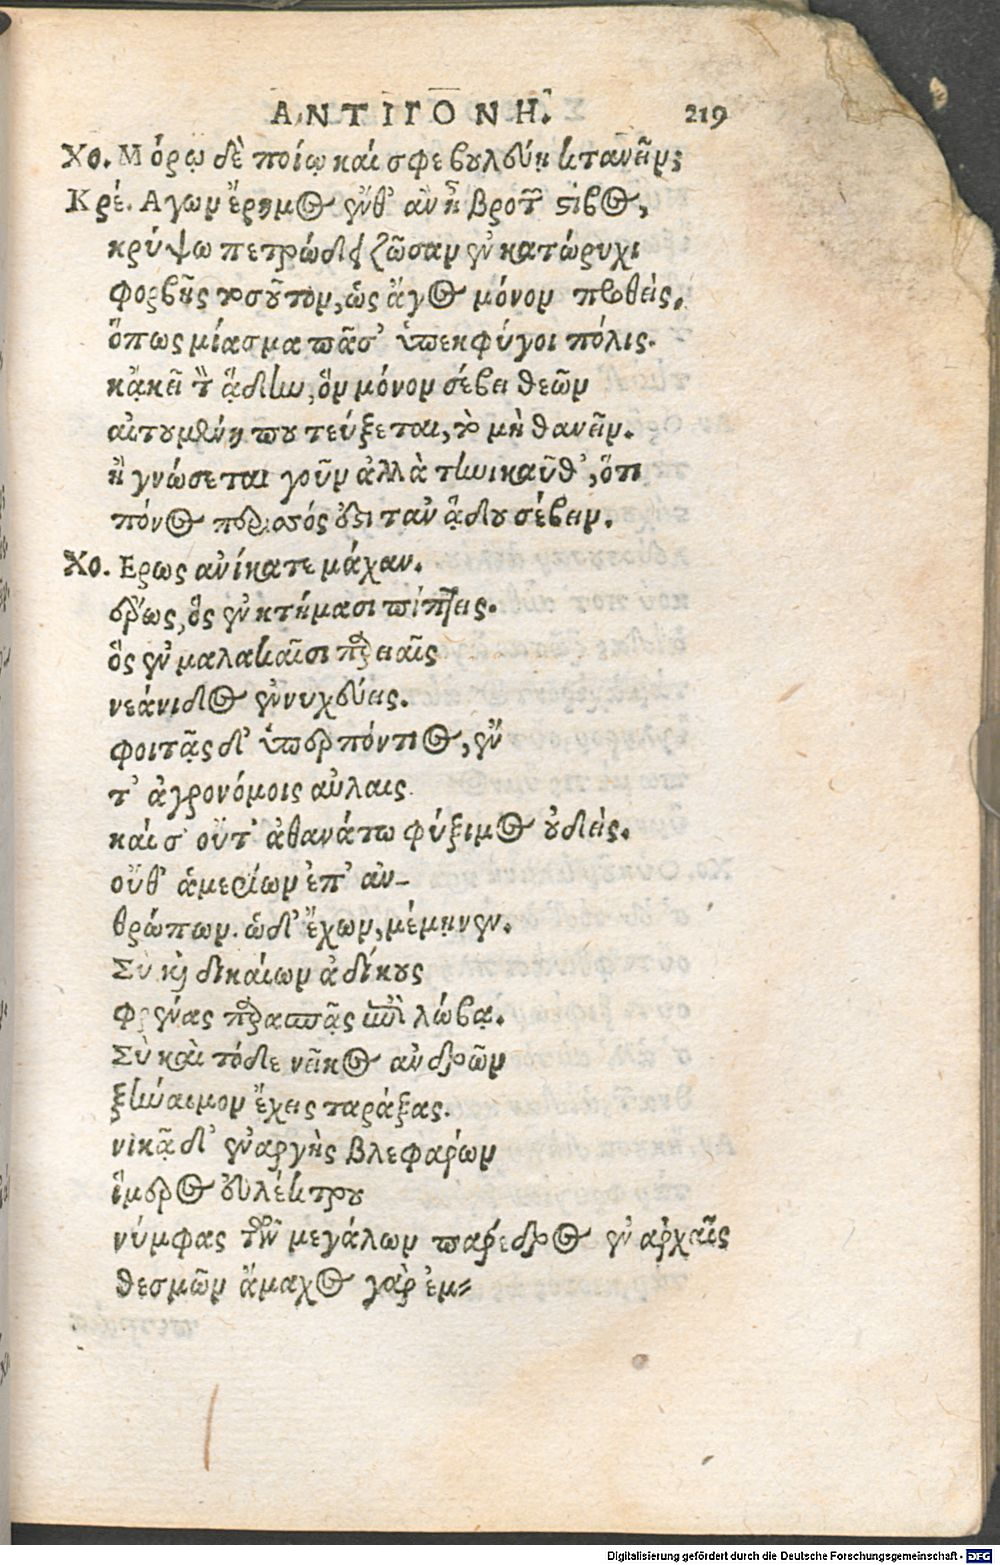 ΑΝΤΙΓΟΝΗ. 219
Χο. Μόρῳ δὲ ποίῳ καί σφε βουλεύῃ κτανεῖν;
Κρέ. Αγων ἔρημος ἔνθ’ ἂν ᾖ βροτῶν στίβος,
κρύψω πετρώδει ζῶσαν ἐν κατώρυχι
φορβῆς τοσοῦτον, ὡς ἄγος μόνον προθείς,
ὅπως μίασμα πᾶσ’ ὑπεκφύγοι πόλις.
κᾀκεῖ τὸν ᾅδην, ὃν μόνον σέβει θεῶν
αἰτουμένη που τεύξεται, τὸ μὴ θανεῖν.
ἢ γνώσεται γοῦν ἀλλὰ τηνικαῦθ’, ὅτι
πόνος περισσός ἐστι τἀν ᾅδου σέβειν.
Χο. Ερως ἀνίκατε μάχαν.
ἔρως, ὃς ἐν κτήμασι πίπτεις.
ὃς ἐν μαλακαῖσι παρειαῖς
νεάνιδος ἐννυχεύεις.
φοιτᾷς δ’ ὑπερπόντιος, ἔν
τ’ ἀγρονόμοις αὐλαις
καί σ’ οὔτ’ ἀθανάτων φύξιμος οὐδείς.
οὔθ’ ἁμερίων ἐπ’ ἀν-
θρώπων. ὁ δ’ ἔχων, μέμηνεν.
Σὺ καὶ δικαίων ἀδίκους
φρένας παρασπᾷς ἐπὶ λώβᾳ.
Σὺ καὶ τόδε νεῖκος ἀνδρῶν
ξύναιμον ἔχεις ταράξας.
νικᾷ δ’ ἐναργὴς βλεφάρων
ἵμερος εὐλέκτρου
νύμφας τῶν μεγάλων πάρεδρος ἐν ἀρχαῖς
θεσμῶν ἄμαχος γὰρ ἐμ-
Digitalisierung gefördert durch die Deutsche Forschungsgemeinschaft - DFG